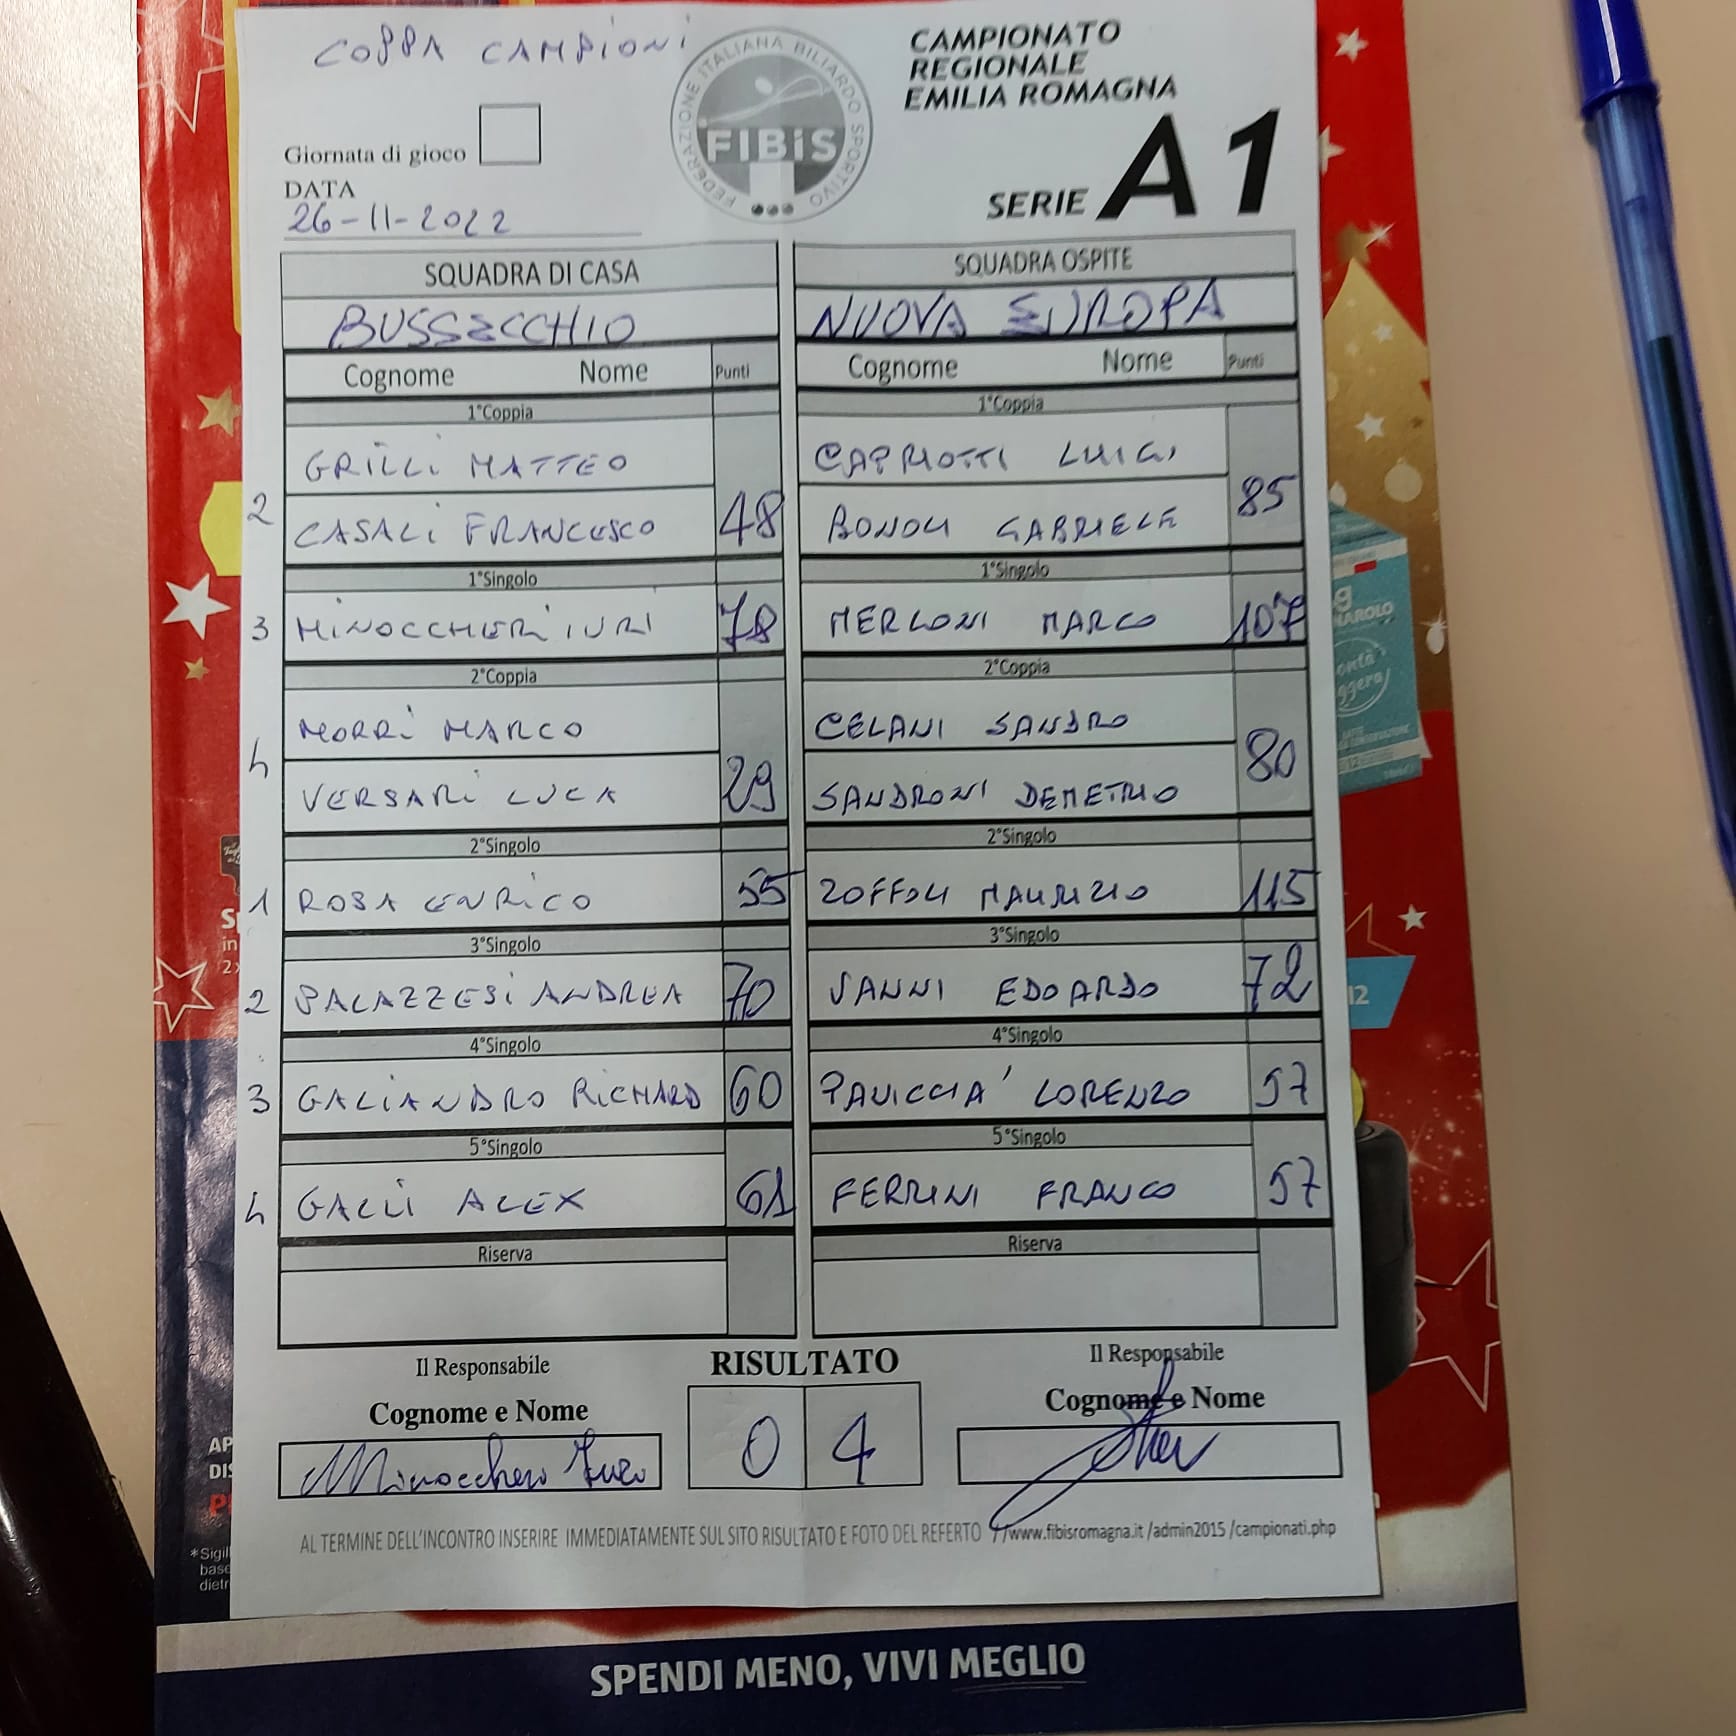 COPPA CAMPIONI
FEDERAZIONE ITALIANA BILIARDO SPORTIVO
FIBiS
CAMPIONATO
REGIONALE
EMILIA ROMAGNA
SERIE A1
Giornata di gioco
DATA
26-11-2022
SQUADRA DI CASA SQUADRA OSPITE
BUSSECCHIO NUOVA EUROPA
Cognome Nome Punti Cognome Nome Punti
1°Coppia 1°Coppia
GRILLI MATTEO CAPRIOTTI LUIGI
2 CASALI FRANCESCO 48 BONOLI GABRIELE 85
1°Singolo 1°Singolo
3 MINOCCHERI IURI 78 MERLONI MARCO 107
2°Coppia 2°Coppia
MORRI MARCO CELANI SANDRO
4 VERSARI LUCA 29 SANDRONI DEMETRIO 80
2°Singolo 2°Singolo
1 ROSA ENRICO 55 ZOFFOLI MAURIZIO 115
3°Singolo 3°Singolo
2 PALAZZESI ANDREA 70 VANNI EDOARDO 72
4°Singolo 4°Singolo
3 GALIANDRO RICHARD 60 PAVICCIA' LORENZO 57
5°Singolo 5°Singolo
4 GALLI ALEX 61 FERRINI FRANCO 57
Riserva Riserva
Il Responsabile RISULTATO Il Responsabile
Cognome e Nome Cognome e Nome
Minoccheri Iuri 0 4
AL TERMINE DELL'INCONTRO INSERIRE IMMEDIATAMENTE SUL SITO RISULTATO E FOTO DEL REFERTO //www.fibisromagna.it /admin2015 /campionati.php
SPENDI MENO, VIVI MEGLIO